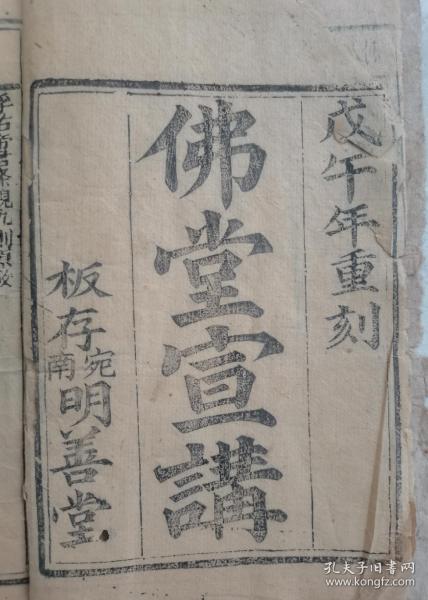 戊午年重刻
佛堂宣講
板存宛南明善堂
孔夫子旧书网
www.kongfz.com